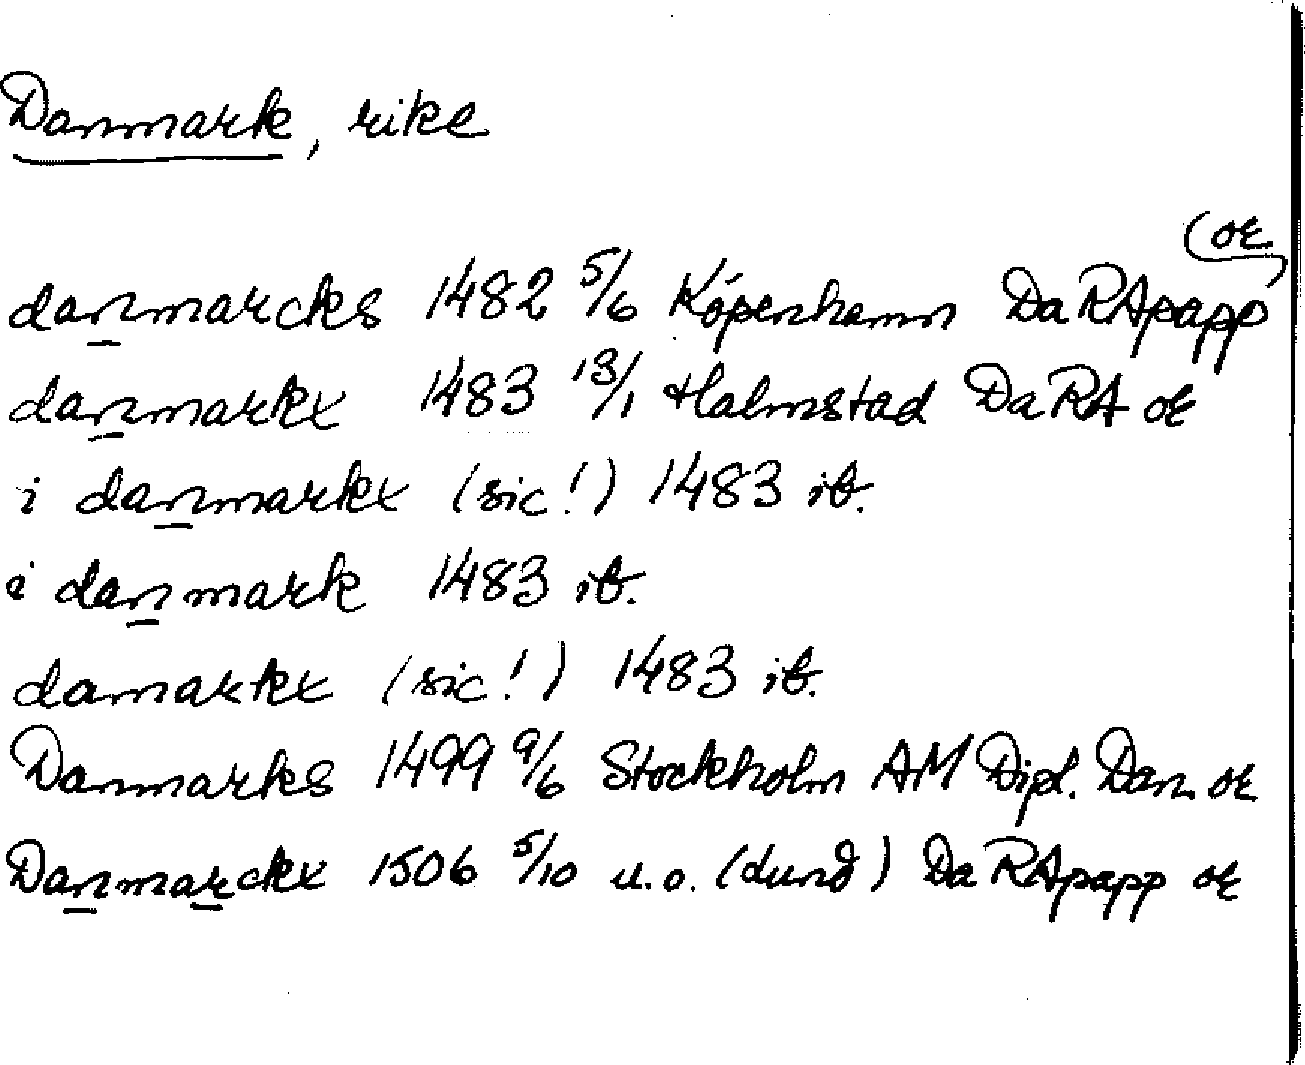 Danmark, rike
(ok
danmarcks 1482 5/6 Köpenhamn DaRApapp
danmarkx 1483 13/1 Halmstad DaRA ok
i danmarkx (sic!) 1483 ib.
i danmark 1483 ib.
damarkx (sic!) 1483 ib.
Danmarks 1499 9/6 Stockholm AM Dipl. Dan. ok
Danmarckx 1506 5/10 u.o. (dund) DaRApapp ok